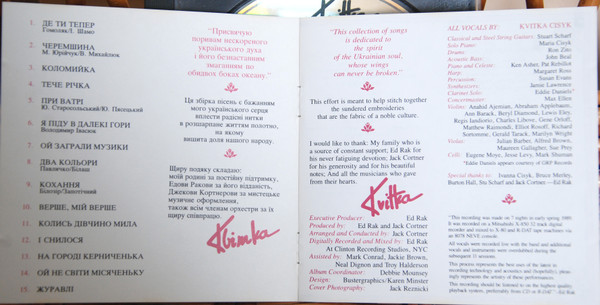 Kvitka
1. ДЕ ТИ ТЕПЕР
Гомоляк/І. Шамо
2. ЧЕРЕМШИНА
М. Юрійчук/В. Михайлюк
3. КОЛОМИЙКА
4. ТЕЧЕ РІЧКА
5. ПРИ ВАТРІ
Ю. Старосольський/Ю. Пясецький
6. Я ПІДУ В ДАЛЕКІ ГОРИ
Володимир Івасюк
7. ОЙ ЗАГРАЛИ МУЗИКИ
8. ДВА КОЛЬОРИ
Павличко/Білаш
9. КОХАННЯ
10. ВЕРШЕ, МІЙ ВЕРШЕ
11. КОЛИСЬ ДІВЧИНО МИЛА
12. І СНИЛОСЯ
13. НА ГОРОДІ КЕРНИЧЕНЬКА
14. ОЙ НЕ СВІТИ МІСЯЧЕНЬКУ
15. ЖУРАВЛІ
"Присвячую
поривам нескореного
українського духа
і його безнастанним
змаганням по
обидвох боках океану."
Ця збірка пісень є бажанням
мого українського серця
вплести радісні нитки
в розшарпане життям полотно,
на якому
вишита доля нашого народу.
Щиру подяку складаю:
моїй родині за постійну підтримку,
Едові Ракови за його відданість,
Джекови Кортнерови за мистецьке
музичне оформлення,
також всім членам оркестри за їх
щиру співпрацю.
Квітка
"This collection of songs
is dedicated to
the spirit
of the Ukrainian soul,
whose wings
can never be broken."
This effort is meant to help stitch together
the sundered embroideries
that are the fabric of a noble culture.
I would like to thank: My family who is
a source of constant support; Ed Rak for
his never fatiguing devotion; Jack Cortner
for his generosity and for his beautiful
notes; And all the musicians who gave
from their hearts.
Kvitka
Executive Producer: Ed Rak
Produced by: Ed Rak and Jack Cortner
Arranged and Conducted by: Jack Cortner
Digitally Recorded and Mixed by: Ed Rak
At Clinton Recording Studios, NYC
Assisted by: Mark Conrad, Jackie Brown,
Neal Dignon and Troy Halderson
Album Coordinator: Debbie Mounsey
Design: Bustergraphics/Karen Minster
Cover Photography: Jack Reznicki
ALL VOCALS BY: KVITKA CISYK
Classical and Steel String Guitars: Stuart Scharf
Solo Piano: Maria Cisyk
Drums: Ron Zito
Acoustic Bass: John Beal
Piano and Celeste: Ken Asher, Pat Rebillot
Harp: Margaret Ross
Percussion: Susan Evans
Synthesizers: Jamie Lawrence
Clarinet Solo: Eddie Daniels*
Concertmaster: Max Ellen
Violins: Anahid Ajemian, Abraham Applebaum,
Ann Barack, Beryl Diamond, Lewis Eley,
Regis Iandiorio, Charles Libove, Gene Orloff,
Matthew Raimondi, Elliot Rosoff, Richard
Sortomme, Gerald Tarack, Marilyn Wright
Violas: Julian Barber, Alfred Brown,
Maureen Gallagher, Sue Pray
Celli: Eugene Moye, Jesse Levy, Mark Shuman
*Eddie Daniels appears courtesy of GRP Records
Special thanks to: Ivanna Cisyk, Bruce Merley,
Burton Hall, Stu Scharf and Jack Cortner — Ed Rak
"This recording was made on 7 tracks in early spring 1989.
It was recorded on a Mitsubishi X-850 32 track digital
recorder and mixed to X-80 and R-DAT tape machines via
an 8078 NEVE console.
All vocals were recorded live with the band and additional
vocals and instruments were overdubbed during the
subsequent sessions.
This process represents the best uses of the latest in
recording technology and acoustics and
represents the artistic of this type of music.
This recording should be listened to on the highest quality
playback system, preferably from CD or R-DAT". — Ed Rak